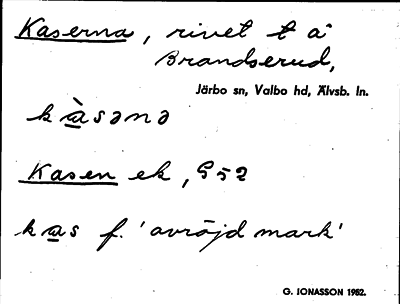 Kaserna, rivet t å
Brandserud,
Järbo sn, Valbo hd, Älvsb. ln.
kàsənə
Kasen ek, 952
kas f. 'avröjd mark'
G. JONASSON 1982.